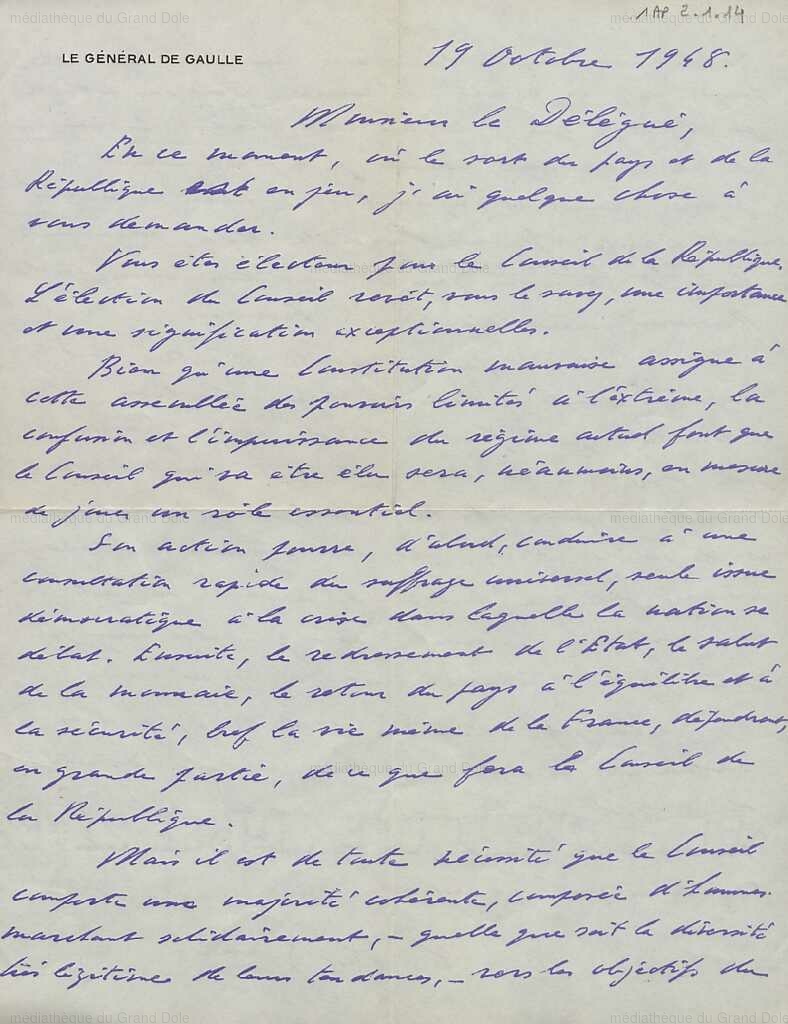 1 AP 2.1.14
médiathèque du Grand Dole
médiathèque du Grand Dole
LE GÉNÉRAL DE GAULLE
19 Octobre 1948.
Monsieur le Délégué,
En ce moment, où le sort du pays et de la
République est en jeu, j'ai quelque chose à
vous demander.
Vous êtes électeur pour le Conseil de la République.
médiathèque du Grand Dole
L'élection du Conseil revêt, vous le savez, une importance
et une signification exceptionnelles.
Bien qu'une Constitution mauvaise assigne à
cette assemblée des pouvoirs limités à l'extrême, la
confusion et l'impuissance du régime actuel font que
le Conseil qui va être élu sera, néanmoins, en mesure
de jouer un rôle essentiel.
médiathèque du Grand Dole
médiathèque du Grand Dole
Son action pourra, d'abord, conduire à une
consultation rapide du suffrage universel, seule issue
démocratique à la crise dans laquelle la nation se
débat. Ensuite, le redressement de l'Etat, le salut
de la monnaie, le retour du pays à l'équilibre et à
la sécurité, bref la vie même de la France, dépendront,
en grande partie, de ce que fera le Conseil de
médiathèque du Grand Dole
la République.
Mais il est de toute nécessité que le Conseil
comporte une majorité cohérente, composée d'hommes
marchant solidairement, – quelle que soit la diversité
très légitime de leurs tendances, – vers les objectifs du
médiathèque du Grand Dole
médiathèque du Grand Dole